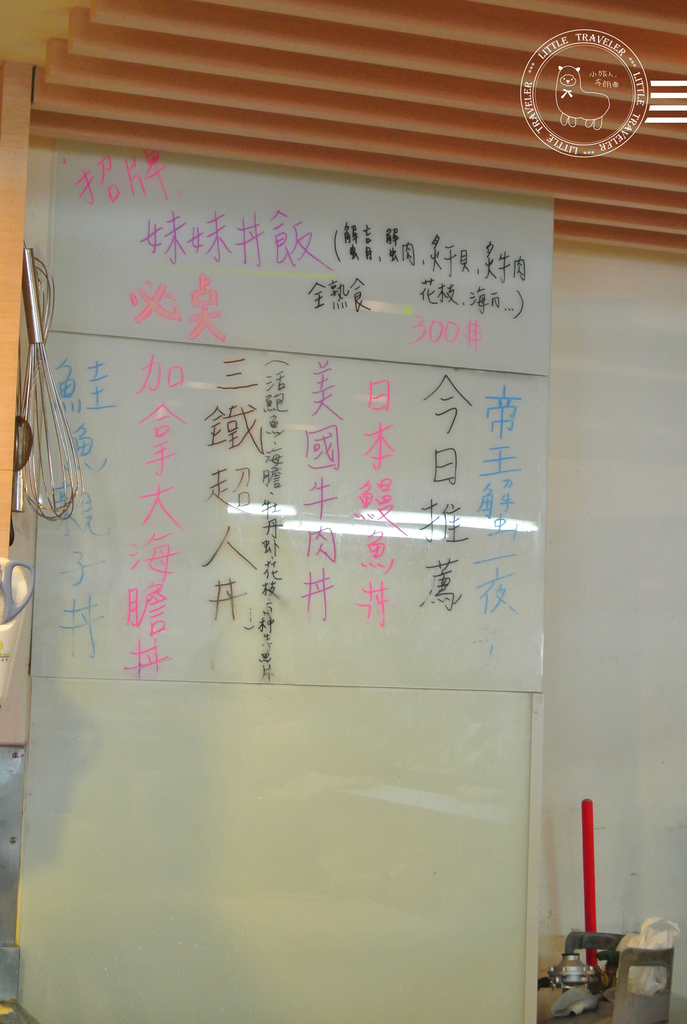 招牌
妹妹丼飯
(蟹膏、蟹肉、炙干貝、炙牛肉
花枝、海ㄉ...)
全熟食
必桌
300$
帝王蟹一夜
今日推薦
日本鰻魚丼
美國牛肉丼
(活鮑魚、海膽、牡丹蝦、花枝、5种生魚片
......)
三鐵超人丼
加拿大海膽丼
鮭魚親子丼
LITTLE TRAVELER ••• LITTLE TRAVELER ••• LITTLE TRAVELER •••
小旅人